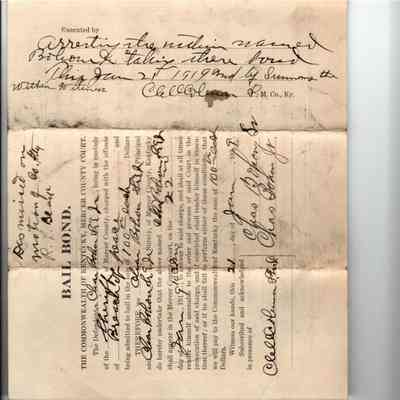 Executed by
arresting the within named
Bohon & taking there bond
This Jan 21 1919 and by Summons the
within witness
S. M. Co., Ky.
Dismissed on
motion of
BAIL BOND.
THE COMMONWEALTH OF KENTUCKY, MERCER COUNTY COURT.
The Defendant, Chas Bohon Sr & Jr, being in custody
of the Mercer County Court, charged with the offense
of breach of peace and
being admitted to bail in the sum of $100 each Dollars
THEREFORE, Principal
Surety, of Mercer County, Kentucky
do hereby undertake that the above named
shall appear in the Mercer County Court, on the 22
day of Jan 1919, to answer said charge, and shall at all times
render himself amenable to the orders and process of said Court in the
prosecution of said charge, and if convicted shall render himself in execution
thereof; or if he shall fail to perform either of these conditions, that
we will pay to the Commonwealth of Kentucky the sum of 100 each
Dollars.
Witness our hands, this 21 day of Jan 191
Subscribed and acknowledged
in presence of
Chas Bohon Sr
Chas Bohon Jr